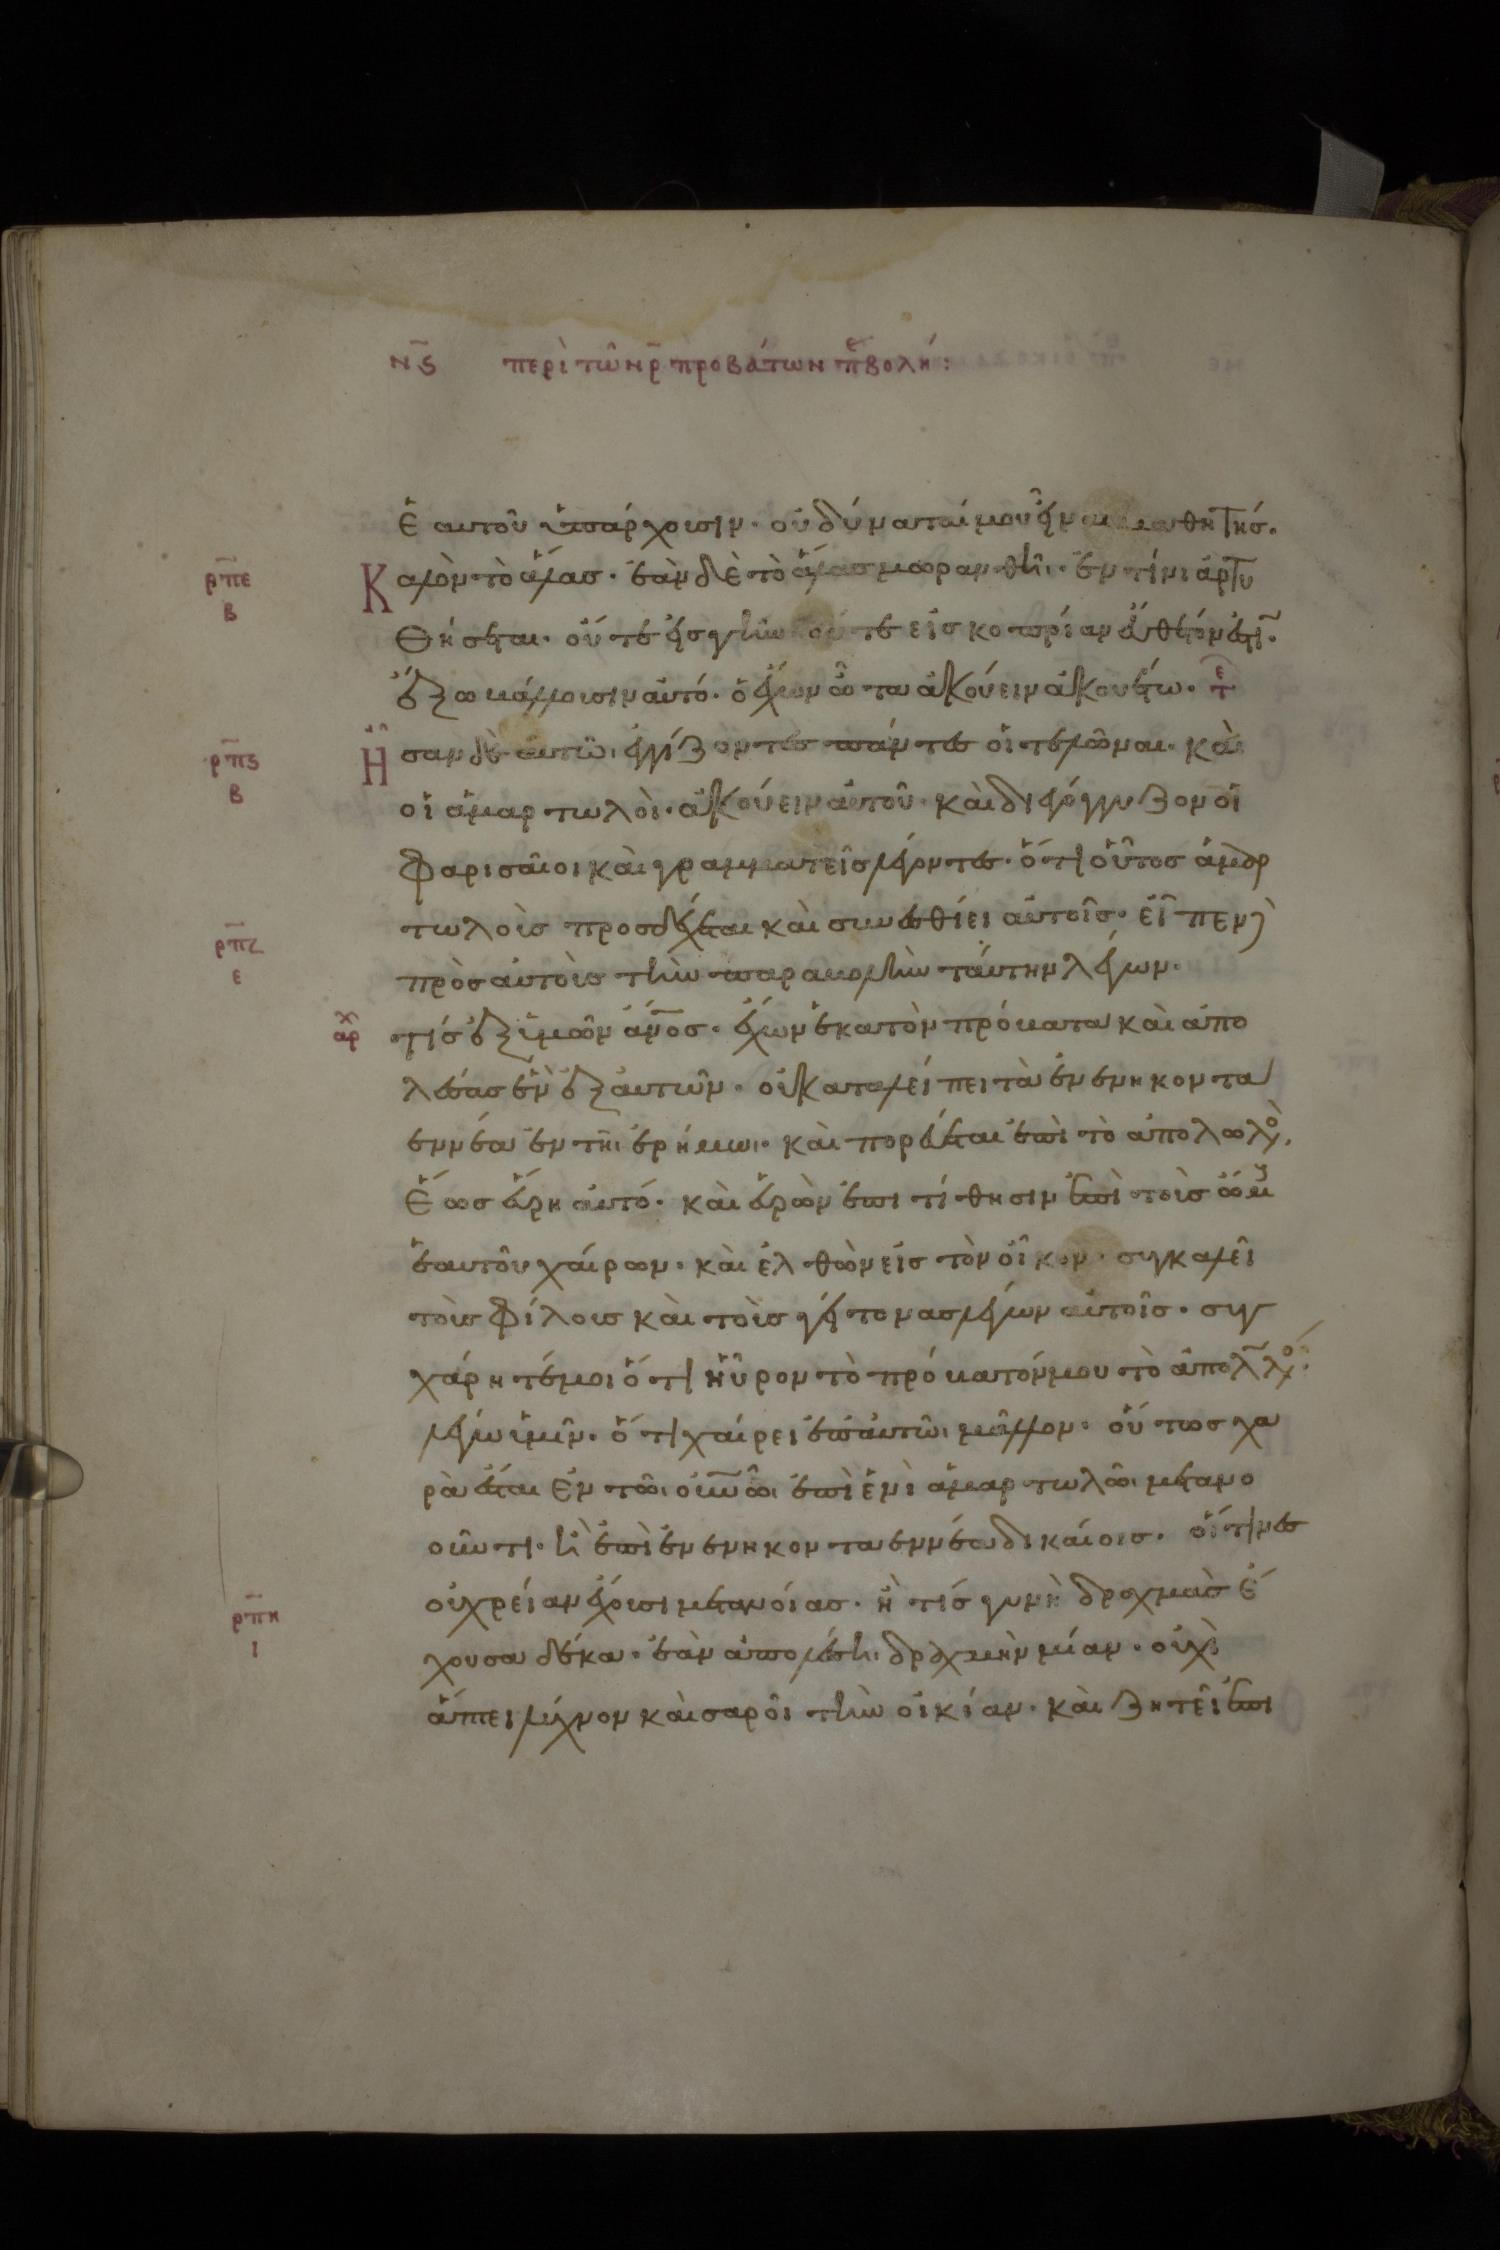 νς περὶ τῶν ρ προβάτων πβολή:
ἑαυτοῦ ὑπάρχουσιν· οὐ δύναταί μου εἶναι μαθητής·
ρπε Καλὸν τὸ ἅλας· ἐὰν δὲ τὸ ἅλας μωρανθῆι· ἐν τίνι ἀρτυ
β θήσεται· οὔτε εἰς γῆν οὔτε εἰς κοπρίαν εὔθετόν ἐστι·
ἔξω βάλλουσιν αὐτό· ὁ ἔχων ὦτα ἀκούειν ἀκουέτω· τε
ρπς Ἦσαν δὲ αὐτῶι ἐγγίζοντες πάντες οἱ τελῶναι· καὶ
β οἱ ἁμαρτωλοὶ· ἀκούειν αὐτοῦ· καὶ διεγόγγυζον οἱ
Φαρισαῖοι καὶ γραμματεῖς λέγοντες· ὅτι οὗτος ἁμαρ
ρπζ τωλοὺς προσδέχεται καὶ συνεσθίει αὐτοῖς· εἶπεν δὲ
ε πρὸς αὐτοὺς τὴν παραβολὴν ταύτην λέγων·
αρχ τίς ἐξ ὑμῶν ἄνος· ἔχων ἑκατὸν πρόβατα καὶ ἀπο
λέσας ἓν ἐξ αὐτῶν· οὐ καταλείπει τὰ ἐνενηκοντα
εννέα ἐν τῆι ἐρήμωι· καὶ πορεύεται ἐπὶ τὸ ἀπολωλὸς,
Ἕως εὕρη αὐτό· καὶ εὑρὼν ἐπιτίθησιν ἐπὶ τοὺς ὤμους
ἑαυτοῦ χαίρων· καὶ ἐλθὼν εἰς τὸν οἶκον· συγκαλεῖ
τοὺς φίλους καὶ τοὺς γείτονας λέγων αὐτοῖς· συγ
χάρητέ μοι ὅτι ηὗρον τὸ πρόβατόν μου τὸ ἀπολωλός·
λέγω ὑμῖν· ὅτι χαίρει ἐπ' αὐτῶι μᾶλλον· οὕτως χα
ρὰ ἔσται ἐν τῶι οὐνῶι ἐπὶ ἑνὶ ἁμαρτωλῶι μετανο
οῦντι· ἢ ἐπὶ ἐνενηκονταεννέα δικαίοις· οἵτινες
ρπη οὐ χρείαν ἔχουσι μετανοίας· ἢ τίς γυνὴ δραχμὰς ἔ
ι χουσα δέκα· ἐὰν ἀπολέση δραχμὴν μίαν· οὐχὶ
ἅπτει λύχνον καὶ σαροῖ τὴν οἰκίαν· καὶ ζητεῖ ἐπι